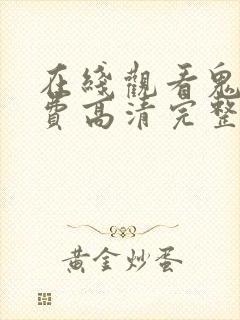 在綫觀看鬼
費高清完整
黃金炒蛋